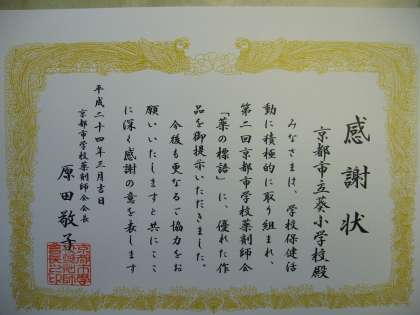 感謝状
京都市立葵小学校殿
みなさまは、学校保健活
動に積極的に取り組まれ、
第二回京都市学校薬剤師会
「薬の標語」に、優れた作
品を御提示いただきました。
今後も更なるご協力をお
願いいたしますと共にここ
に深く感謝の意を表します
平成二十四年三月吉日
京都市学校薬剤師会会長
原田敬子